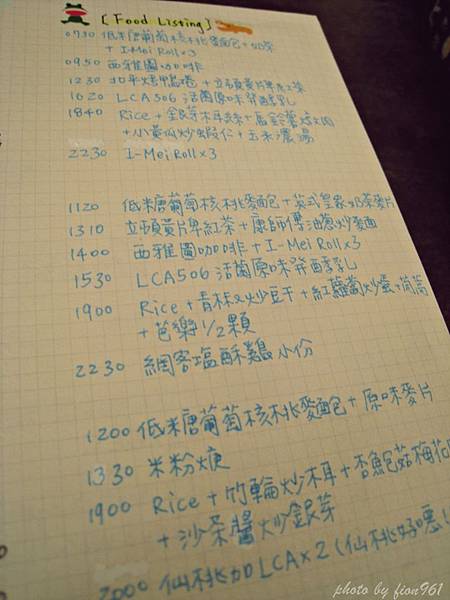 [Food Listing]
0730 低米唐葡萄核桃麥麵包+奶茶
+ I-Mei Roll×3
0950 西雅圖咖啡
1230 北平烤鴨捲+立頓黃牌紅茶
1620 LCA506 活菌原味発酵乳
1840 Rice+銀芽木耳絲+馬鈴薯燉肉
+小黃瓜炒蝦仁+玉米濃湯
2230 I-Mei Roll×3
1120 低米唐葡萄核桃麥麵包+英式皇家奶茶麥片
1310 立頓黃牌紅茶+康師傅油蔥炒麵
1400 西雅圖咖啡+I-Mei Roll×3
1530 LCA506 活菌原味発酵乳
1900 Rice+青椒炒豆干+紅蘿蔔炒蛋+茼蒿
+芭樂1/2顆
2230 網客塩酥雞小份
1200 低米唐葡萄核桃麥麵包+原味麥片
1330 米粉焿
1900 Rice+竹輪炒木耳+杏鮑菇梅花
+沙茶醬炒銀芽
2000 仙桃加LCA×2(仙桃好噁!
photo by fion961